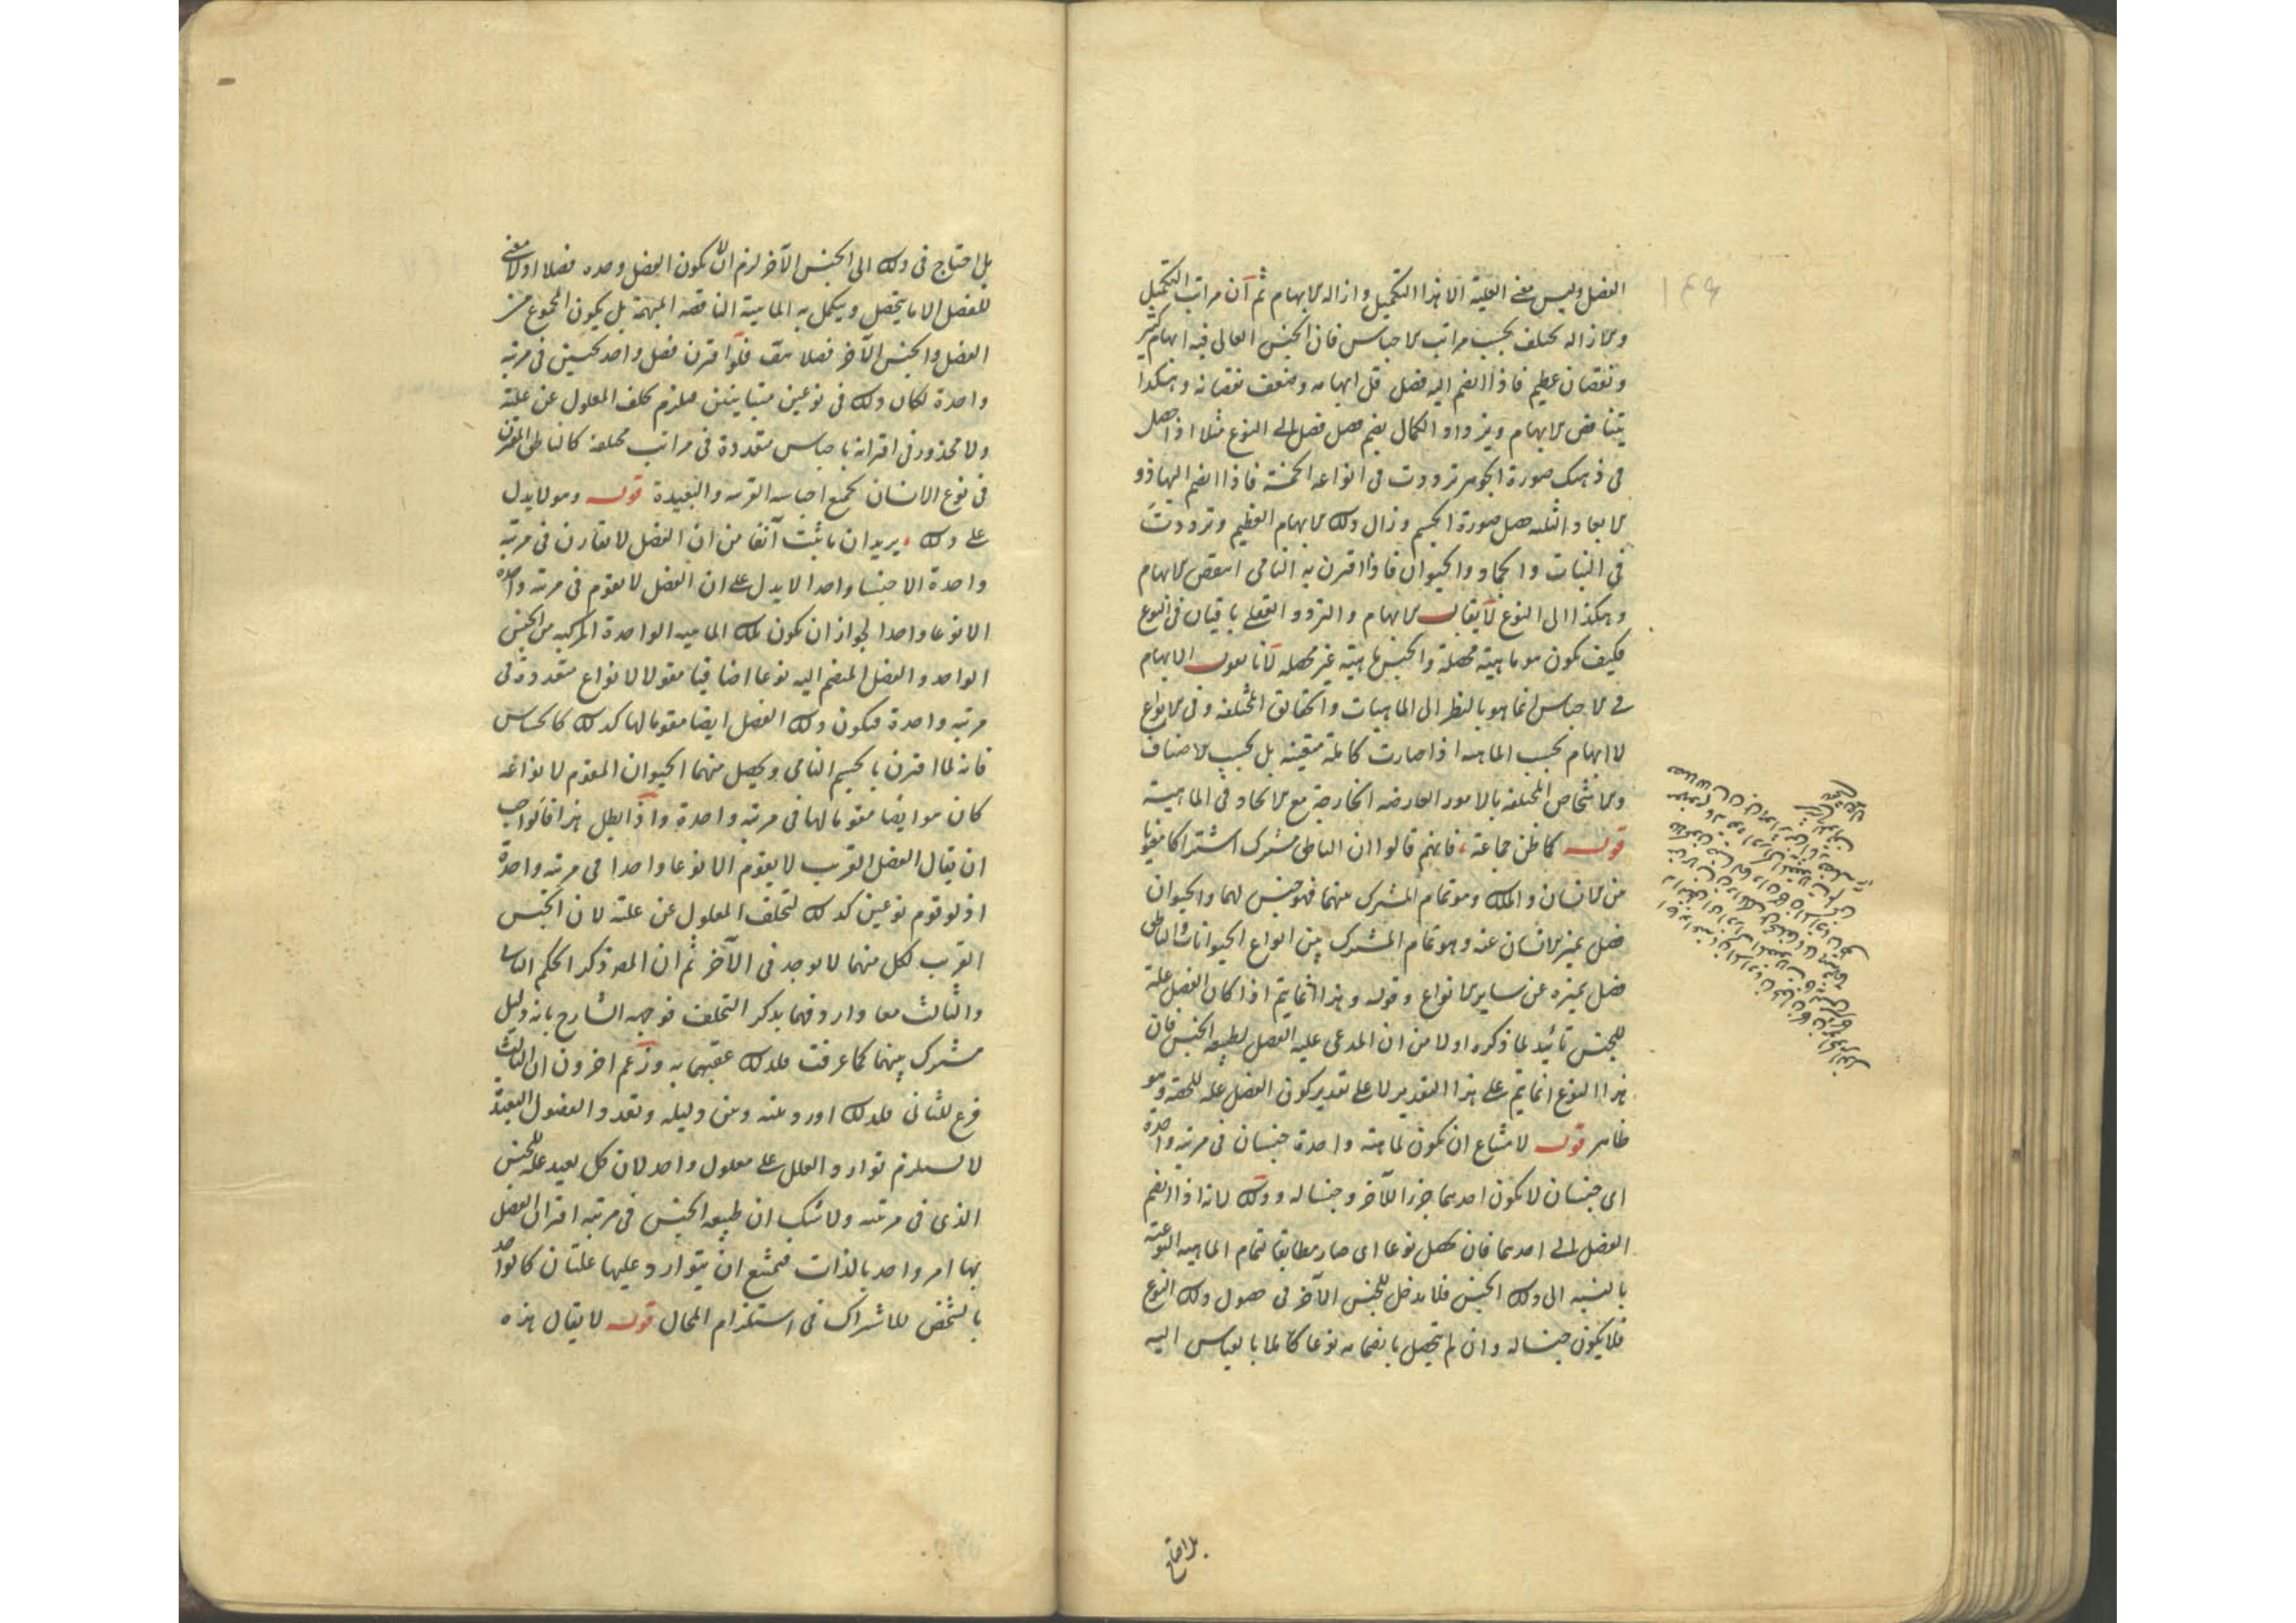 الفصل وليس معنى العلية الا هذا التكميل وازالة الابهام ثم ان مراتب التكميل
والازالة تختلف بحسب مراتب الاجناس فان الجنس العالى فيه ابهام كثير
ونقصان عظيم فاذا انضم اليه فصل قل ابهامه وضعف نقصانه وهكذا
يتناقص الابهام ويزداد الكمال بضم فصل فصل الى النوع مثلا اذا حصل
فى ذهنك صورة الجوهر ترددت فى انواعه الخمسة فاذا انضم اليها ذو
الابعاد الثلثة حصل صورة الجسم وزال ذلك الابهام العظيم وترددت
فى النبات والجماد والحيوان فاذا اقترن به النامى انتقص الابهام
وهكذا الى النوع لا يقال الابهام والتردد العقلى باقيان فى النوع
فكيف تكون هو ماهية محصلة والجنس ماهية غير محصلة لانا نقول الابهام
فى الاجناس انما هو بالنظر الى الماهيات والحقائق المختلفة وفى الانواع
لا ابهام بحسب الماهية اذا صارت كاملة متعينة بل بحسب الاصناف
والاشخاص المختلفة بالامور العارضة الخارجة مع الاتحاد فى الماهية
قوله كما ظن جماعة فانهم قالوا ان الناطق مشترك اشتراكا معنويا
بين الانسان والملك وهو تمام المشترك بينهما فهو جنس لهما والحيوان
فصل يميز الانسان عنه وهو تمام المشترك بين انواع الحيوانات والناطق
فصل يميزه عن ساير الانواع وقوله وهذا انما يتم اذا كان الفصل علة
للجنس تائيد لما ذكره اولا من ان المدعى علية الفصل لطبيعة الجنس فان
هذا النوع انما يتم على هذا التقدير لا على تقدير كون الفصل علة للحصة وهو
ظاهر قوله لامتناع ان تكون لماهية واحدة جنسان فى مرتبة واحدة
اى جنسان لا يكون احدهما جزءا للآخر وجنسا له وذلك لانه اذا انضم
الفصل الى احدهما فان تحصل نوعا اى صار مطابقا لتمام الماهية النوعية
بالنسبة الى ذلك الجنس فلا مدخل للجنس الآخر فى حصول ذلك النوع
فلا يكون جنسا له وان لم يتحصل بانضمامه نوعا كاملا بالقياس اليه
بل احتاج
بل احتاج فى ذلك الى الجنس الآخر لزم ان لا يكون الفصل وحده فصلا اذ لا معنى
للفصل الا ما يتحصل ويكمل به الماهية الناقصة المبهمة بل يكون المجموع من
الفصل والجنس الآخر فصلا هف فلو اقترن فصل واحد بجنسين فى مرتبة
واحدة لكان ذلك فى نوعين متباينين فيلزم تخلف المعلول عن علته
ولا محذور فى اقترانه باجناس متعددة فى مراتب مختلفة كالناطق المقترن
فى نوع الانسان بجميع اجناسه القريبة والبعيدة قوله وهو لا يدل
على ذلك يريد ان ما ثبت آنفا من ان الفصل لا يقارن فى مرتبة
واحدة الا جنسا واحدا لا يدل على ان الفصل لا يقوم فى مرتبة واحدة
الا نوعا واحدا لجواز ان تكون تلك الماهية الواحدة المركبة من الجنس
الواحد والفصل المنضم اليه نوعا اضافيا مقولا لانواع متعددة فى
مرتبة واحدة فيكون ذلك الفصل ايضا مقوما لها كذلك كالحساس
فانه لما اقترن بالجسم النامى ويحصل منهما الحيوان المقوم لانواعه
كان هو ايضا مقوما لها فى مرتبة واحدة واذا بطل هذا فالواجب
ان يقال الفصل القريب لا يقوم الا نوعا واحدا فى مرتبة واحدة
اذ لو قوم نوعين كذلك لتخلف المعلول عن علته لان الجنس
القريب لكل منهما لا يوجد فى الآخر ثم ان المص ذكر الحكم الثانى
والثالث معا واردفهما بذكر التخلف فوجهه الشارح بانه دليل
مشترك بينهما كما عرفت فلذلك عقبهما به وزعم اخرون ان الثالث
فرع للثانى فلذلك اورد بينه وبين دليله وتعدد الفصول البعيدة
لا يستلزم توارد العلل على معلول واحد لان كل بعيد علة للجنس
الذى فى مرتبته ولا شك ان طبيعة الجنس فى مرتبة اقتران الفصل
بها امر واحد بالذات فيمتنع ان يتوارد عليها علتان كالواحد
بالشخص للاشتراك فى استلزام المحال قوله لا يقال هذه